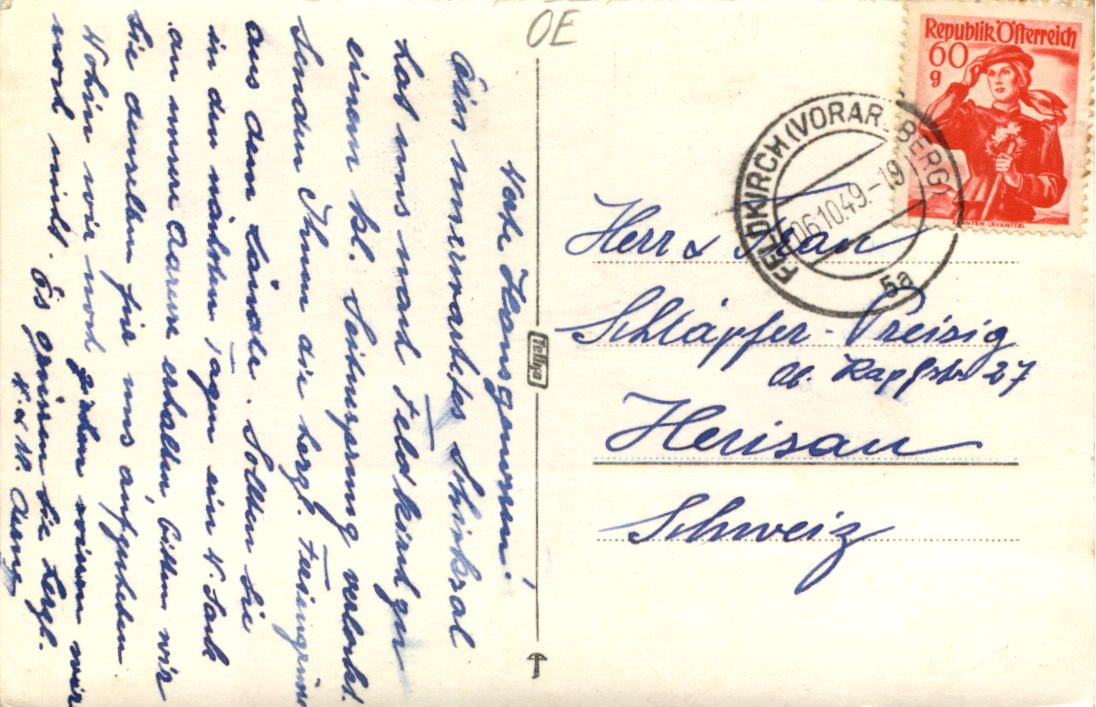 OE
Republik Österreich
60
g
KÄRNTEN LAVANTTAL
FELDKIRCH (VORARLBERG)
06.10.49.-19
5a
Herr & Frau
Schläpfer-Preisig
ob. Rapfstr 27
Herisau
Schweiz
Tellko
Werte Hausgenossen!
Ein unerwartetes Schicksal
hat uns nach Feldkirch zu
einem kl. Seitensprung verlockt.
Senden Ihnen die herzl. Feriengrüsse
aus dem Ländle. Sollten Sie
in den nächsten Tagen ein Sack
an unsere Adresse erhalten, bitten wir
Sie denselben für uns aufzuheben
Wohin wir noch gehen wissen wir
noch nicht. Es grüssen Sie herzl.